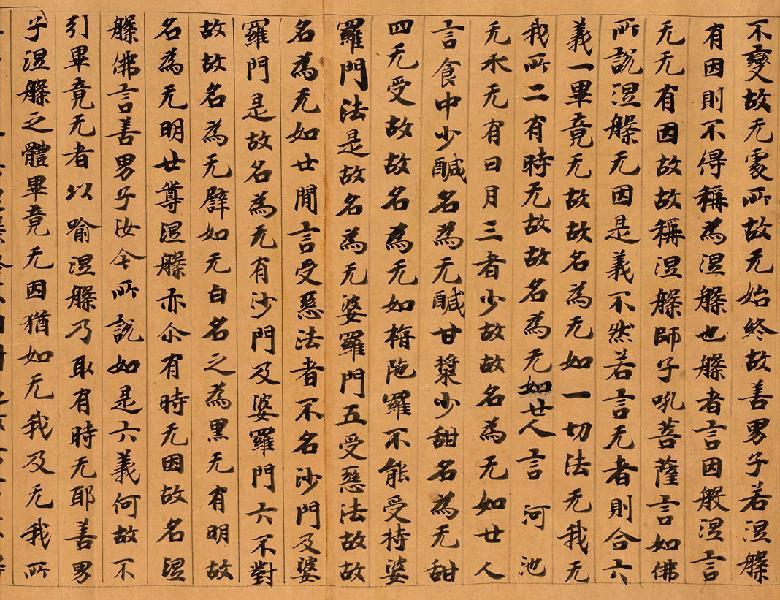 不變故无處所故无始終故善男子若涅槃
有因則不得稱為涅槃也槃者言因般涅言
无无有因故故稱涅槃師子吼菩薩言如佛
所說涅槃无因是義不然若言无者則合六
義一畢竟无故故名為无如一切法无我无
我所二有時无故故名為无如世人言河池
无水无有日月三者少故故名為无如世人
言食中少鹹名為无鹹甘漿少甜名為无甜
四无受故故名為无如栴陁羅不能受持婆
羅門法是故名為无婆羅門五受惡法故故
名為无如世間言受惡法者不名沙門及婆
羅門是故名為无有沙門及婆羅門六不對
故故名為无譬如无白名之為黑无有明故
名為无明世尊涅槃亦尒有時无因故名涅
槃佛言善男子汝今所說如是六義何故不
引畢竟无者以喻涅槃乃取有時无耶善男
子涅槃之體畢竟无因猶如无我及无我所